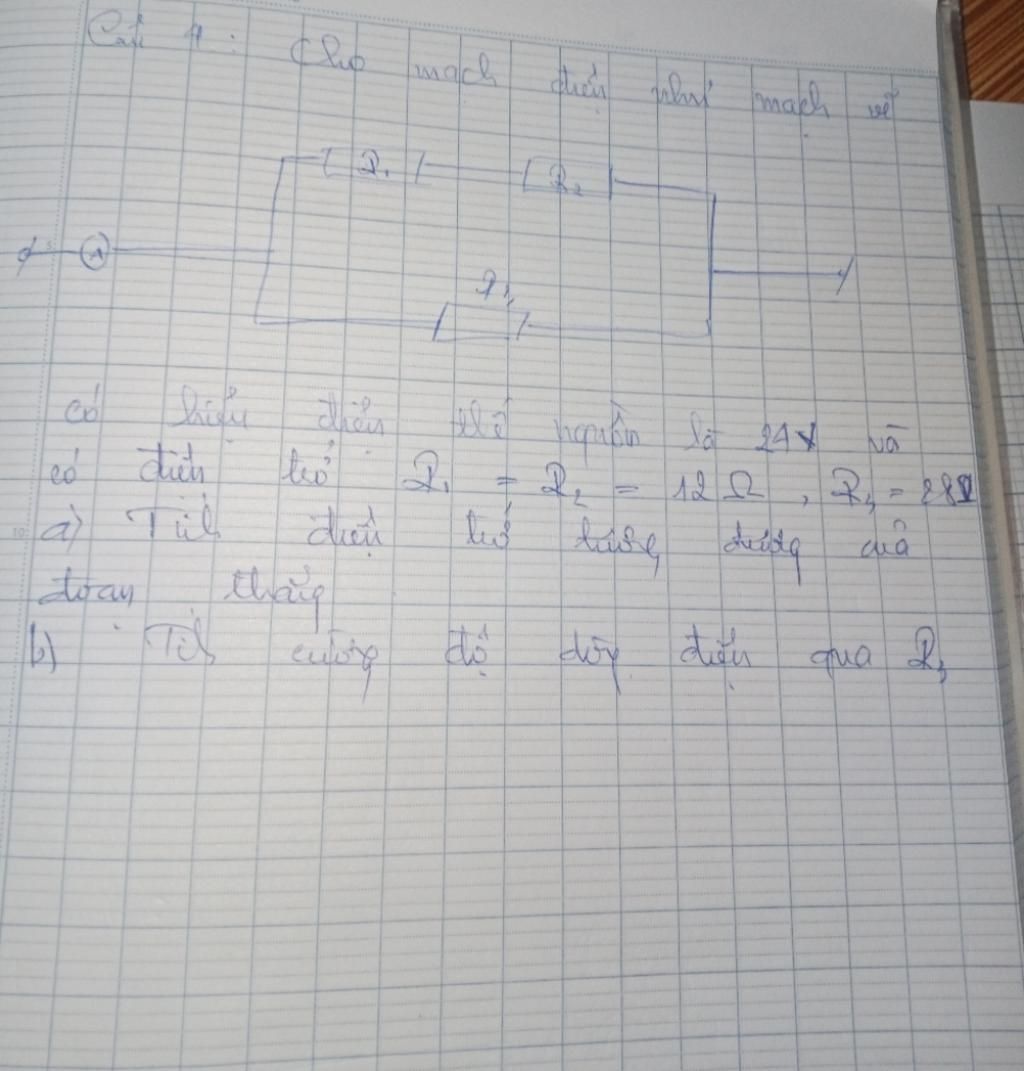 Câu 4: Cho mạch điện như mạch vẽ
R₁ R₂
A
có hiệu điện thế nguồn là 24V và
có điện trở R₁ = R₂ = 12 Ω, R₃ =
a) Tính điện trở tương đương của
đoạn thẳng
b) Tính cường độ dòng điện qua R₃